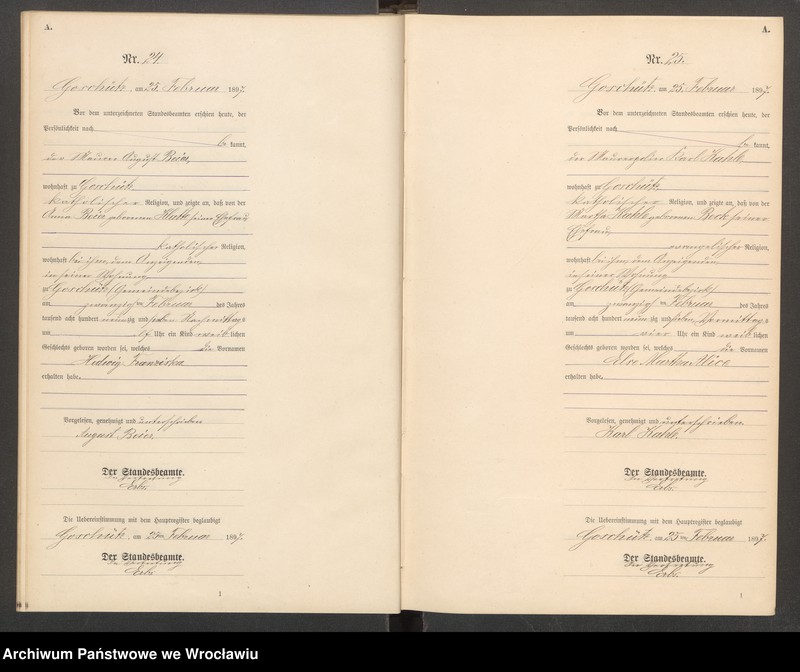 A.
Nr. 24.
Goschütz, am 25. Februar 1897.
Vor dem unterzeichneten Standesbeamten erschien heute, der
Persönlichkeit nach
be kannt,
der Maurer August Beier,
wohnhaft zu Goschütz
katholischer Religion, und zeigte an, daß von der
Anna Beier geborenen seine Ehefrau
katholischer Religion,
wohnhaft bei ihm, dem Anzeigenden,
in seiner Wohnung
zu Goschütz (Gemeindebezirk)
am zwanzigsten Februar des Jahres
tausend acht hundert neunzig und sieben Nachmittags
um elf Uhr ein Kind weiblichen
Geschlechts geboren worden sei, welches die Vornamen
Hedwig Franziska
erhalten habe.
Vorgelesen, genehmigt und unterschrieben
August Beier.
Der Standesbeamte.
In Vertretung
Erbs.
Die Uebereinstimmung mit dem Hauptregister beglaubigt
Goschütz, am 25ten Februar 1897.
Der Standesbeamte.
In Vertretung
Erbs.
1
A.
Nr. 25.
Goschütz, am 25. Februar 1897.
Vor dem unterzeichneten Standesbeamten erschien heute, der
Persönlichkeit nach
be kannt,
der Maurerpolier Karl
wohnhaft zu Goschütz
katholischer Religion, und zeigte an, daß von der
Martha geborenen Bock seiner
Ehefrau,
evangelischer Religion,
wohnhaft bei ihm, dem Anzeigenden,
in seiner Wohnung
zu Goschütz (Gemeindebezirk)
am zwanzigsten Februar des Jahres
tausend acht hundert neunzig und sieben Vormittags
um vier Uhr ein Kind weiblichen
Geschlechts geboren worden sei, welches die Vornamen
Martha Alice
erhalten habe.
Vorgelesen, genehmigt und unterschrieben
Karl
Der Standesbeamte.
In Vertretung
Erbs.
Die Uebereinstimmung mit dem Hauptregister beglaubigt
Goschütz, am 25ten Februar 1897.
Der Standesbeamte.
In Vertretung
Erbs.
1
Archiwum Państwowe we Wrocławiu